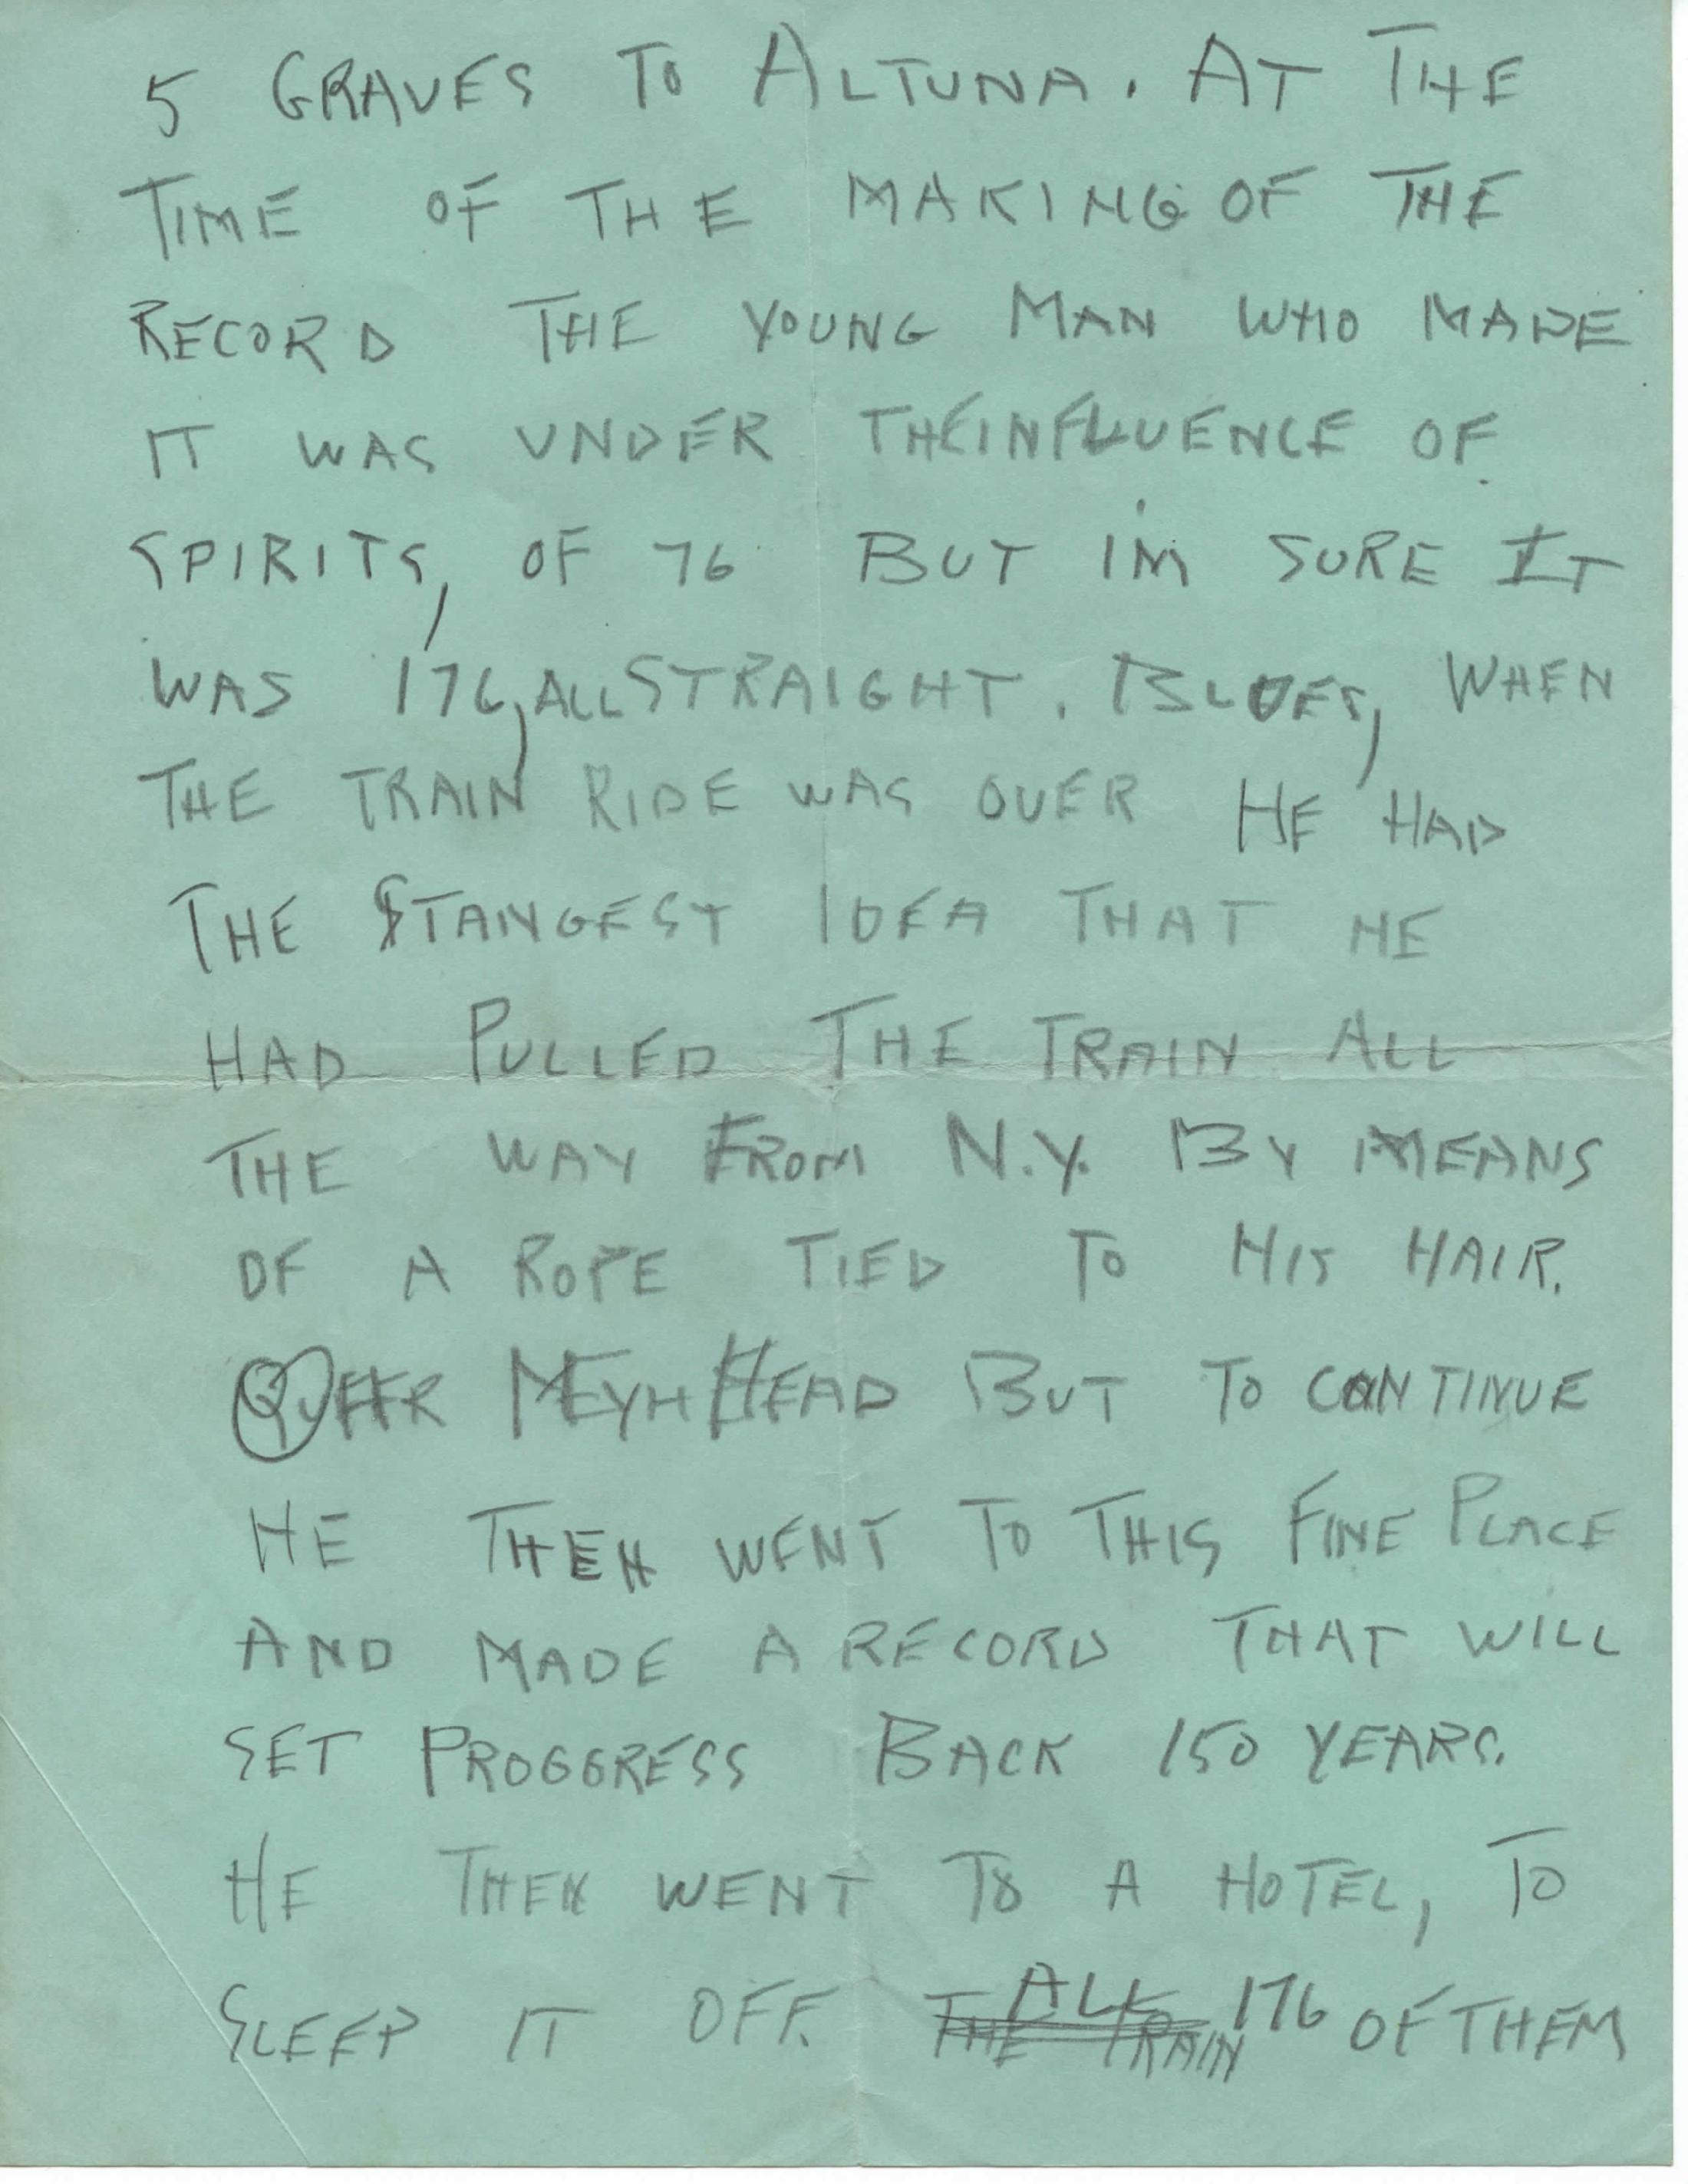 5 GRAVES TO ALTUNA. AT THE
TIME OF THE MAKING OF THE
RECORD THE YOUNG MAN WHO MADE
IT WAS UNDER THE INFLUENCE OF
SPIRITS, OF 76 BUT IM SURE IT
WAS 176, ALL STRAIGHT. BLUES, WHEN
THE TRAIN RIDE WAS OVER HE HAD
THE STANGEST IDEA THAT HE
HAD PULLED THE TRAIN ALL
THE WAY FROM N.Y. BY MEANS
OF A ROPE TIED TO HIS HAIR.
QUEER HEAD BUT TO CONTINUE
HE THEN WENT TO THIS FINE PLACE
AND MADE A RECORD THAT WILL
SET PROGGRESS BACK 150 YEARS.
HE THEN WENT TO A HOTEL, TO
SLEEP IT OFF. THE TRAIN ALL 176 OF THEM